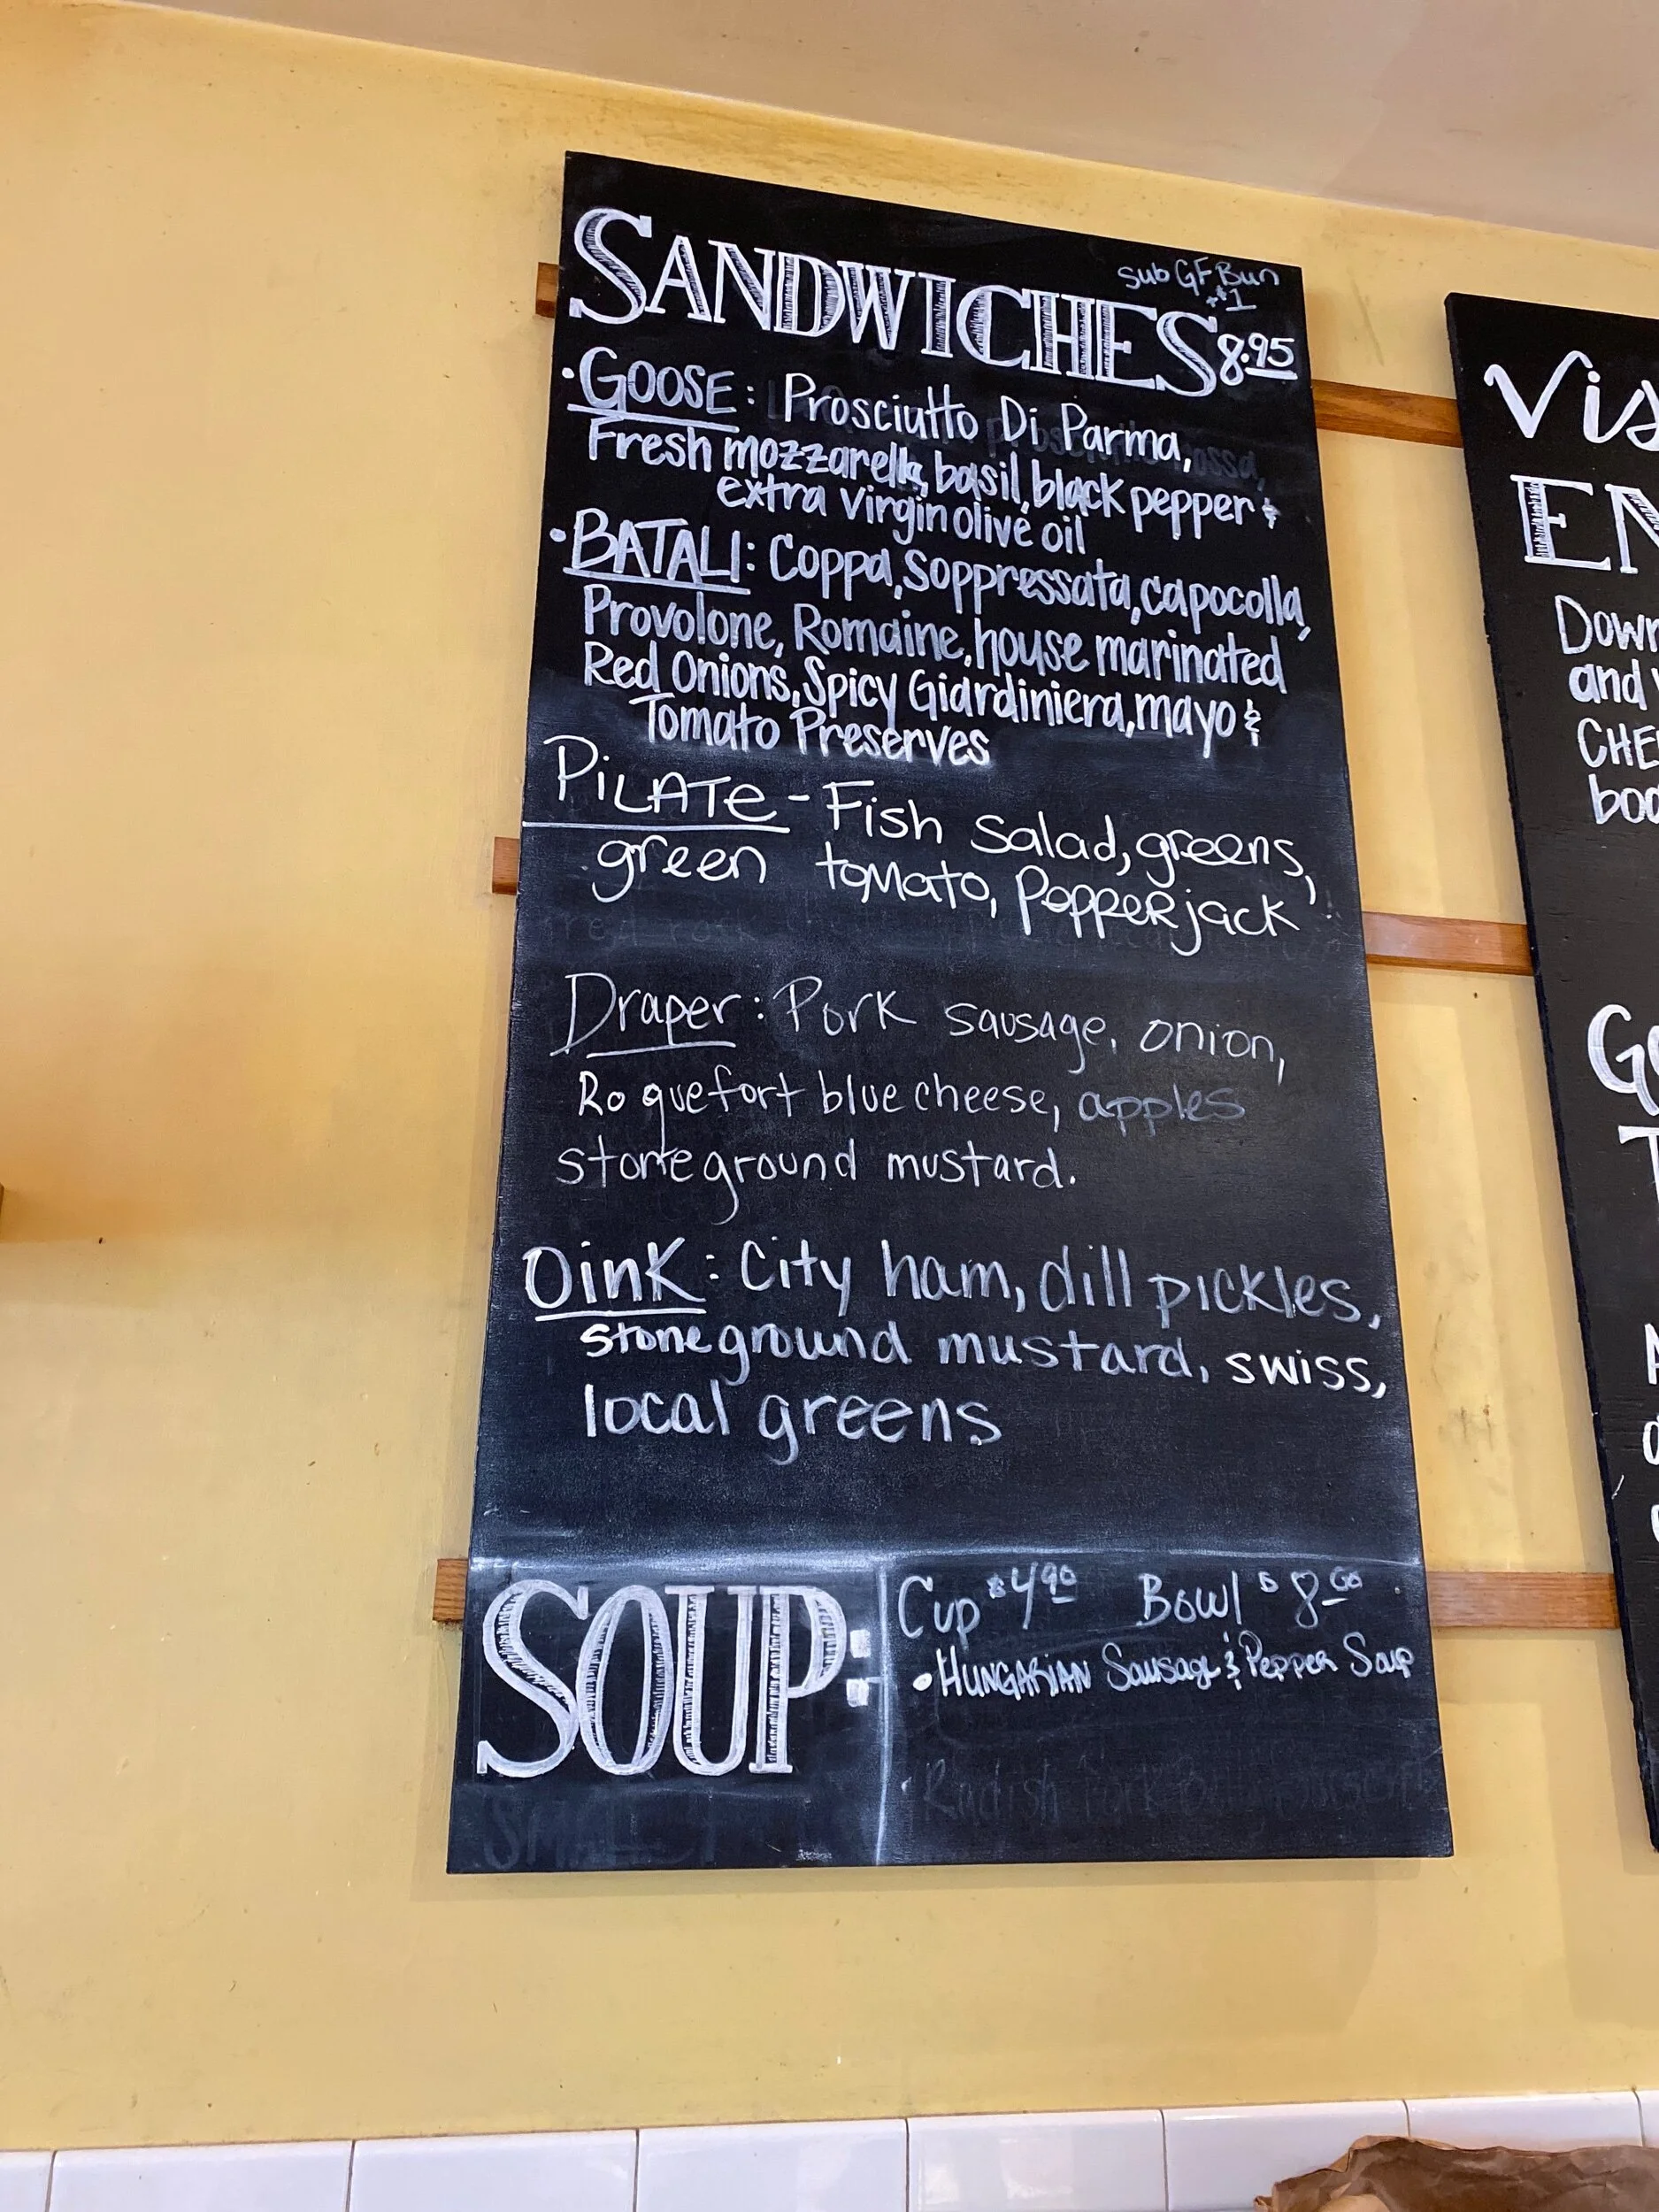 SANDWICHES
sub GF Bun
+$1
8.95
•GOOSE: Prosciutto Di Parma,
Fresh mozzarella, basil, black pepper &
extra virgin olive oil
•BATALI: Coppa, Soppressata, capocolla,
Provolone, Romaine, house marinated
Red Onions, Spicy Giardiniera, mayo &
Tomato Preserves
PiLATe - Fish Salad, greens,
green tomato, Pepperjack
Draper: Pork sausage, onion,
Roquefort blue cheese, apples
stoneground mustard.
Oink: City ham, dill pickles,
stoneground mustard, swiss,
local greens
SOUP:
Cup $4.90 Bowl $8.00
• HUNGARIAN Sausage & Pepper Soup
Radish Pork
Vis
EN
Down
and
CHE